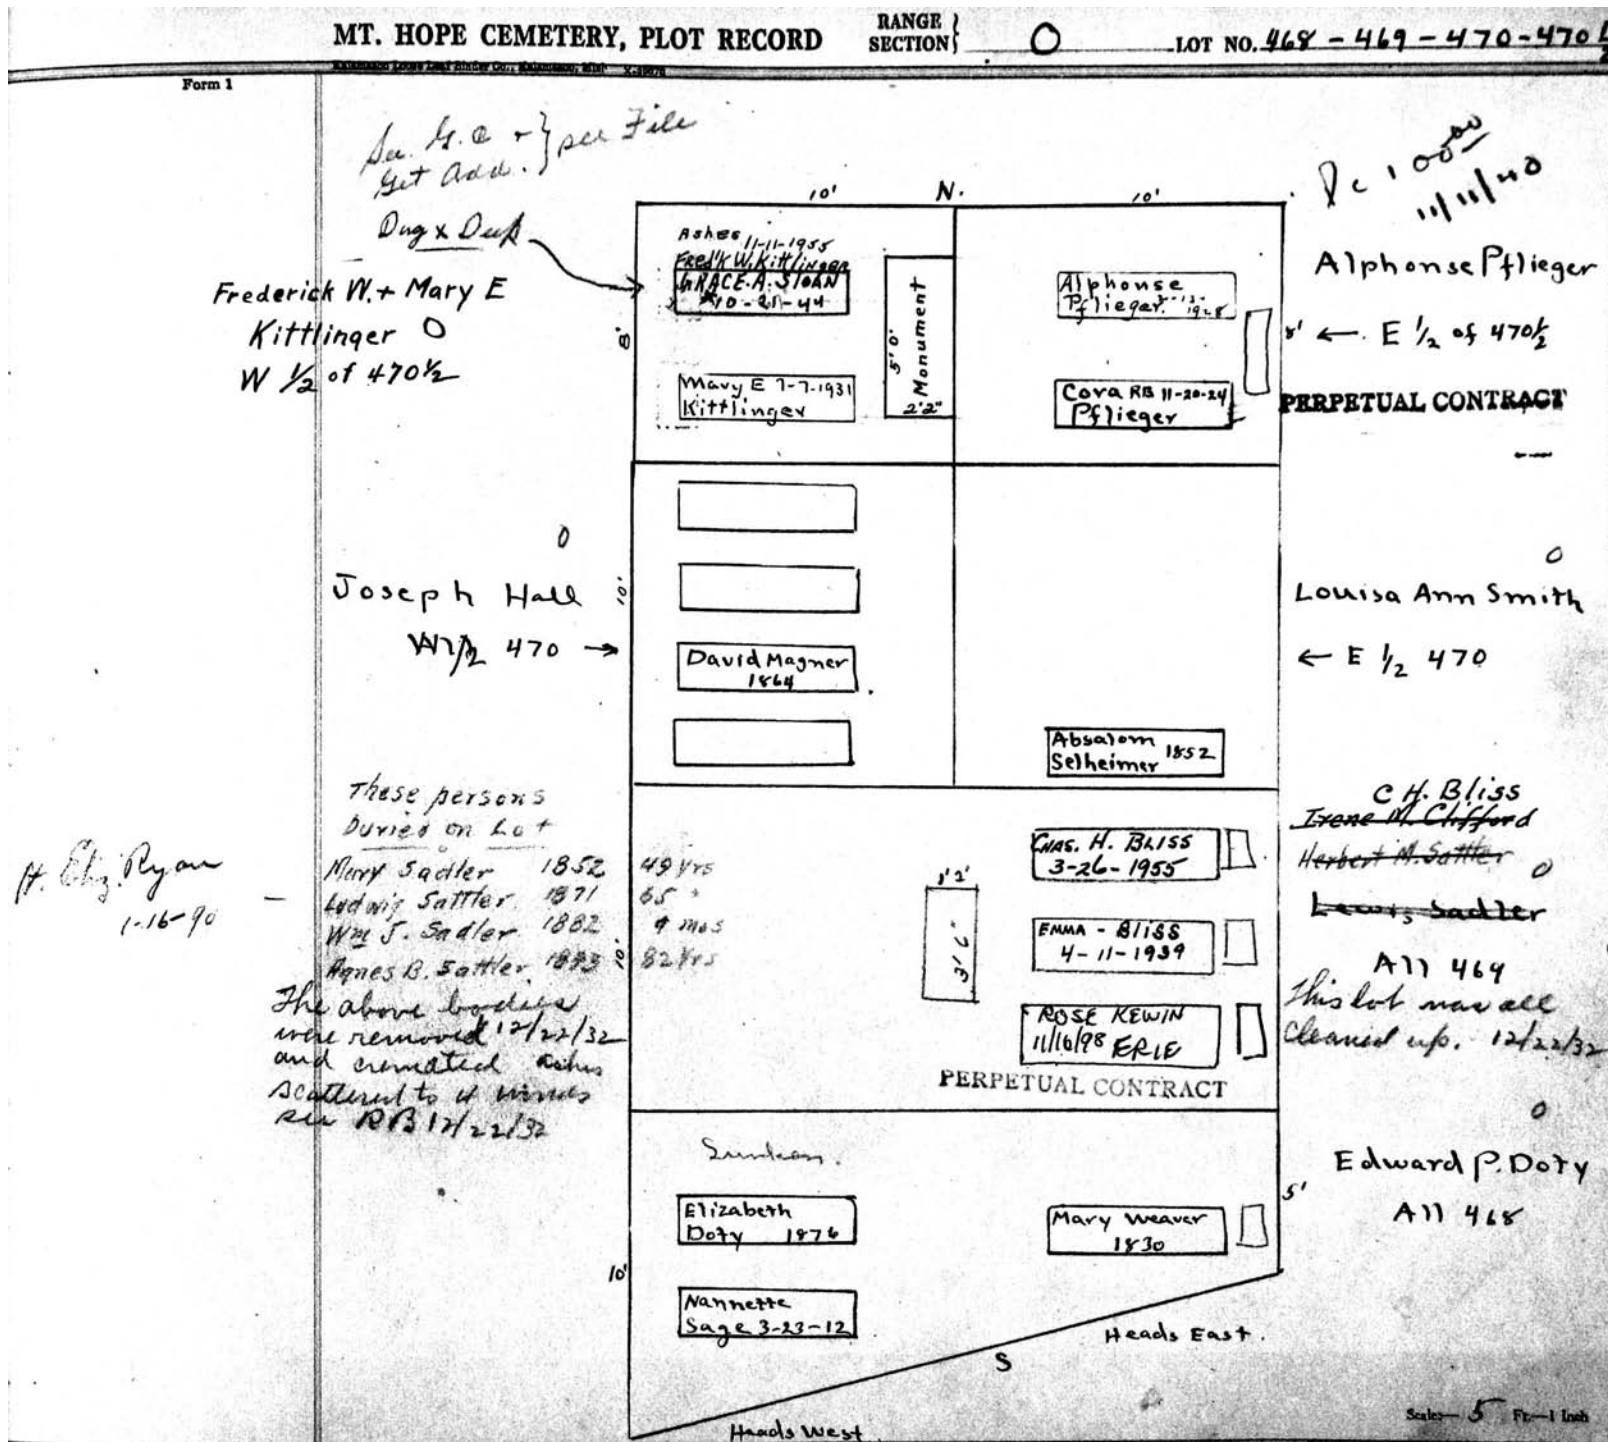 MT. HOPE CEMETERY, PLOT RECORD
RANGE
SECTION
O
LOT NO. 468 - 469 - 470 - 470 1/2
Kalamazoo Loose Leaf Binder Co., Kalamazoo, Mich.
Form 1
See G.O +
Get Add.
see File
Dug x Deep
Pc 100.00
11/11/40
10' N. 10'
Frederick W. + Mary E
Kittlinger O
W 1/2 of 470 1/2
Ashes 11-11-1955
Fred'k W. Kittlinger
GRACE. A. SLOAN
10-21-44
8'
Mary E 7-7-1931
Kittlinger
5'0"
Monument
2'2"
Alphonse
Pflieger 1928
Cora RB 11-20-24
Pflieger
Alphonse Pflieger
8' ← E 1/2 of 470 1/2
PERPETUAL CONTRACT
O
Joseph Hall
W 1/2 470 →
10'
David Magner
1864
Absalom
Selheimer 1852
O
Louisa Ann Smith
← E 1/2 470
These persons
Buried on Lot
Mary Sadler 1852 49 yrs
Ludwig Sattler 1871 65 "
Wm J. Sadler 1882 9 mos
Agnes B. Sattler 1893 82 yrs
10'
The above bodies
were removed 12/22/32
and cremated ashes
scattered to 4 winds
see RB 12/22/32
H. Eliz. Ryan
1-16-90
1'2"
3'6"
CHAS. H. BLISS
3-26-1955
EMMA - BLISS
4-11-1939
ROSE KEWIN
11/16/98 ERIE
PERPETUAL CONTRACT
C H. Bliss
Irene M. Clifford
Herbert M. Sattler
O
Lewis Sadler
All 469
This lot was all
cleaned up. 12/22/32
Sunken.
Elizabeth
Doty 1876
Nannette
Sage 3-23-12
10'
Mary Weaver
1830
O
Edward P. Doty
5'
All 468
Heads East.
S
Heads West
Scale— 5 Ft.—1 Inch